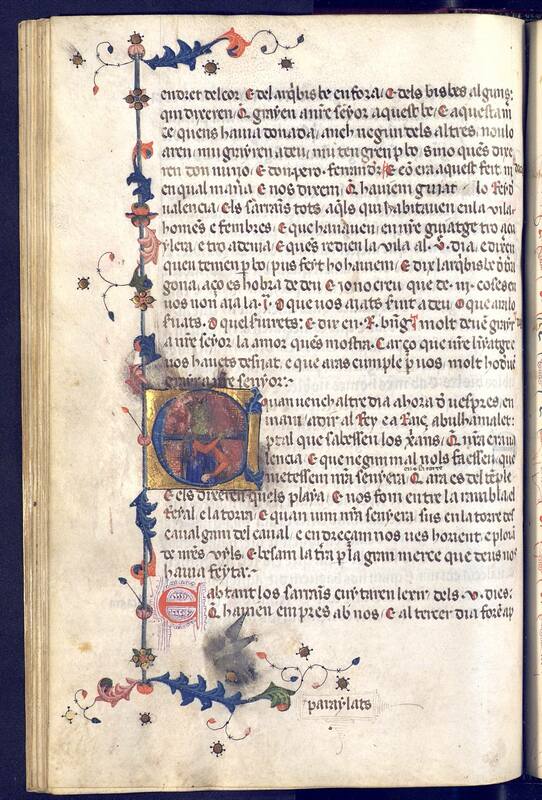 endret del cor. E del arq̃bisbe en fora / E dels bisbes alguns:
qui dixeren / Q̃ grayen a nr̃e seyor aquest be / E aquesta m̃
ce quens hauia donada / anch negun dels altres / nonlo
aren / ni u grayren a deu / ni u tengren p bo / sino ques dixe
ren don nuno / E don pero . ferrandiç
en qual mañ̃a E nos dixem / Q̃ hauiem guiat lo Rey đ
valencia / E els sarraïs tots aq̃ls qui habitauen en la vila
homẽs e fembres / E que hanauen en nr̃e guiatge tro a cu
ylera / e tro a denia / E quẽs redien la vila al . v . dia / e dixeren
quen tenien p bo / pus feyt ho hauiem / E dix larq̃bisbe đ
gona / aço es hobra de deu E io no creu que de . iij . coses en
uos non aia la . j . O que uos aiats siuit a deu / O que ara lo
siuats . O quel siurets : E dix en . R . bñg̃ molt deuẽ grayr
a nr̃e seyor la amor ques mostra . Car ço que nr̃e linyatge
uos hauets desijat / e que aras cumple p uos / molt ho deuẽ
grayr a nr̃e senyor :-
Quan uench altre dia a hora đ uespres / en
uiam / a dir al Rey e a Raiç abulhamalet :
p tal que sabessen los xãns / Q̃ nr̃a era ua
lencia / E que negun mal nols faessen / que
metessem nr̃a senyera
E els dixeren quels playa / E nos fom entre la rambla e l
Reyal e la torra / E quan uim nr̃a senyera sus en la torre des
caualgam del caual / e endreçam nos ues horient e plorã
de nr̃es vyls / E besam la tr̃a p la gran merce que deus nos
hauia feyta :-
E ab tant los sarraïs cuytaren lexir dels . v . dies :
Q̃ hauien empres ab nos / E al tercer dia foren ap
paraylats